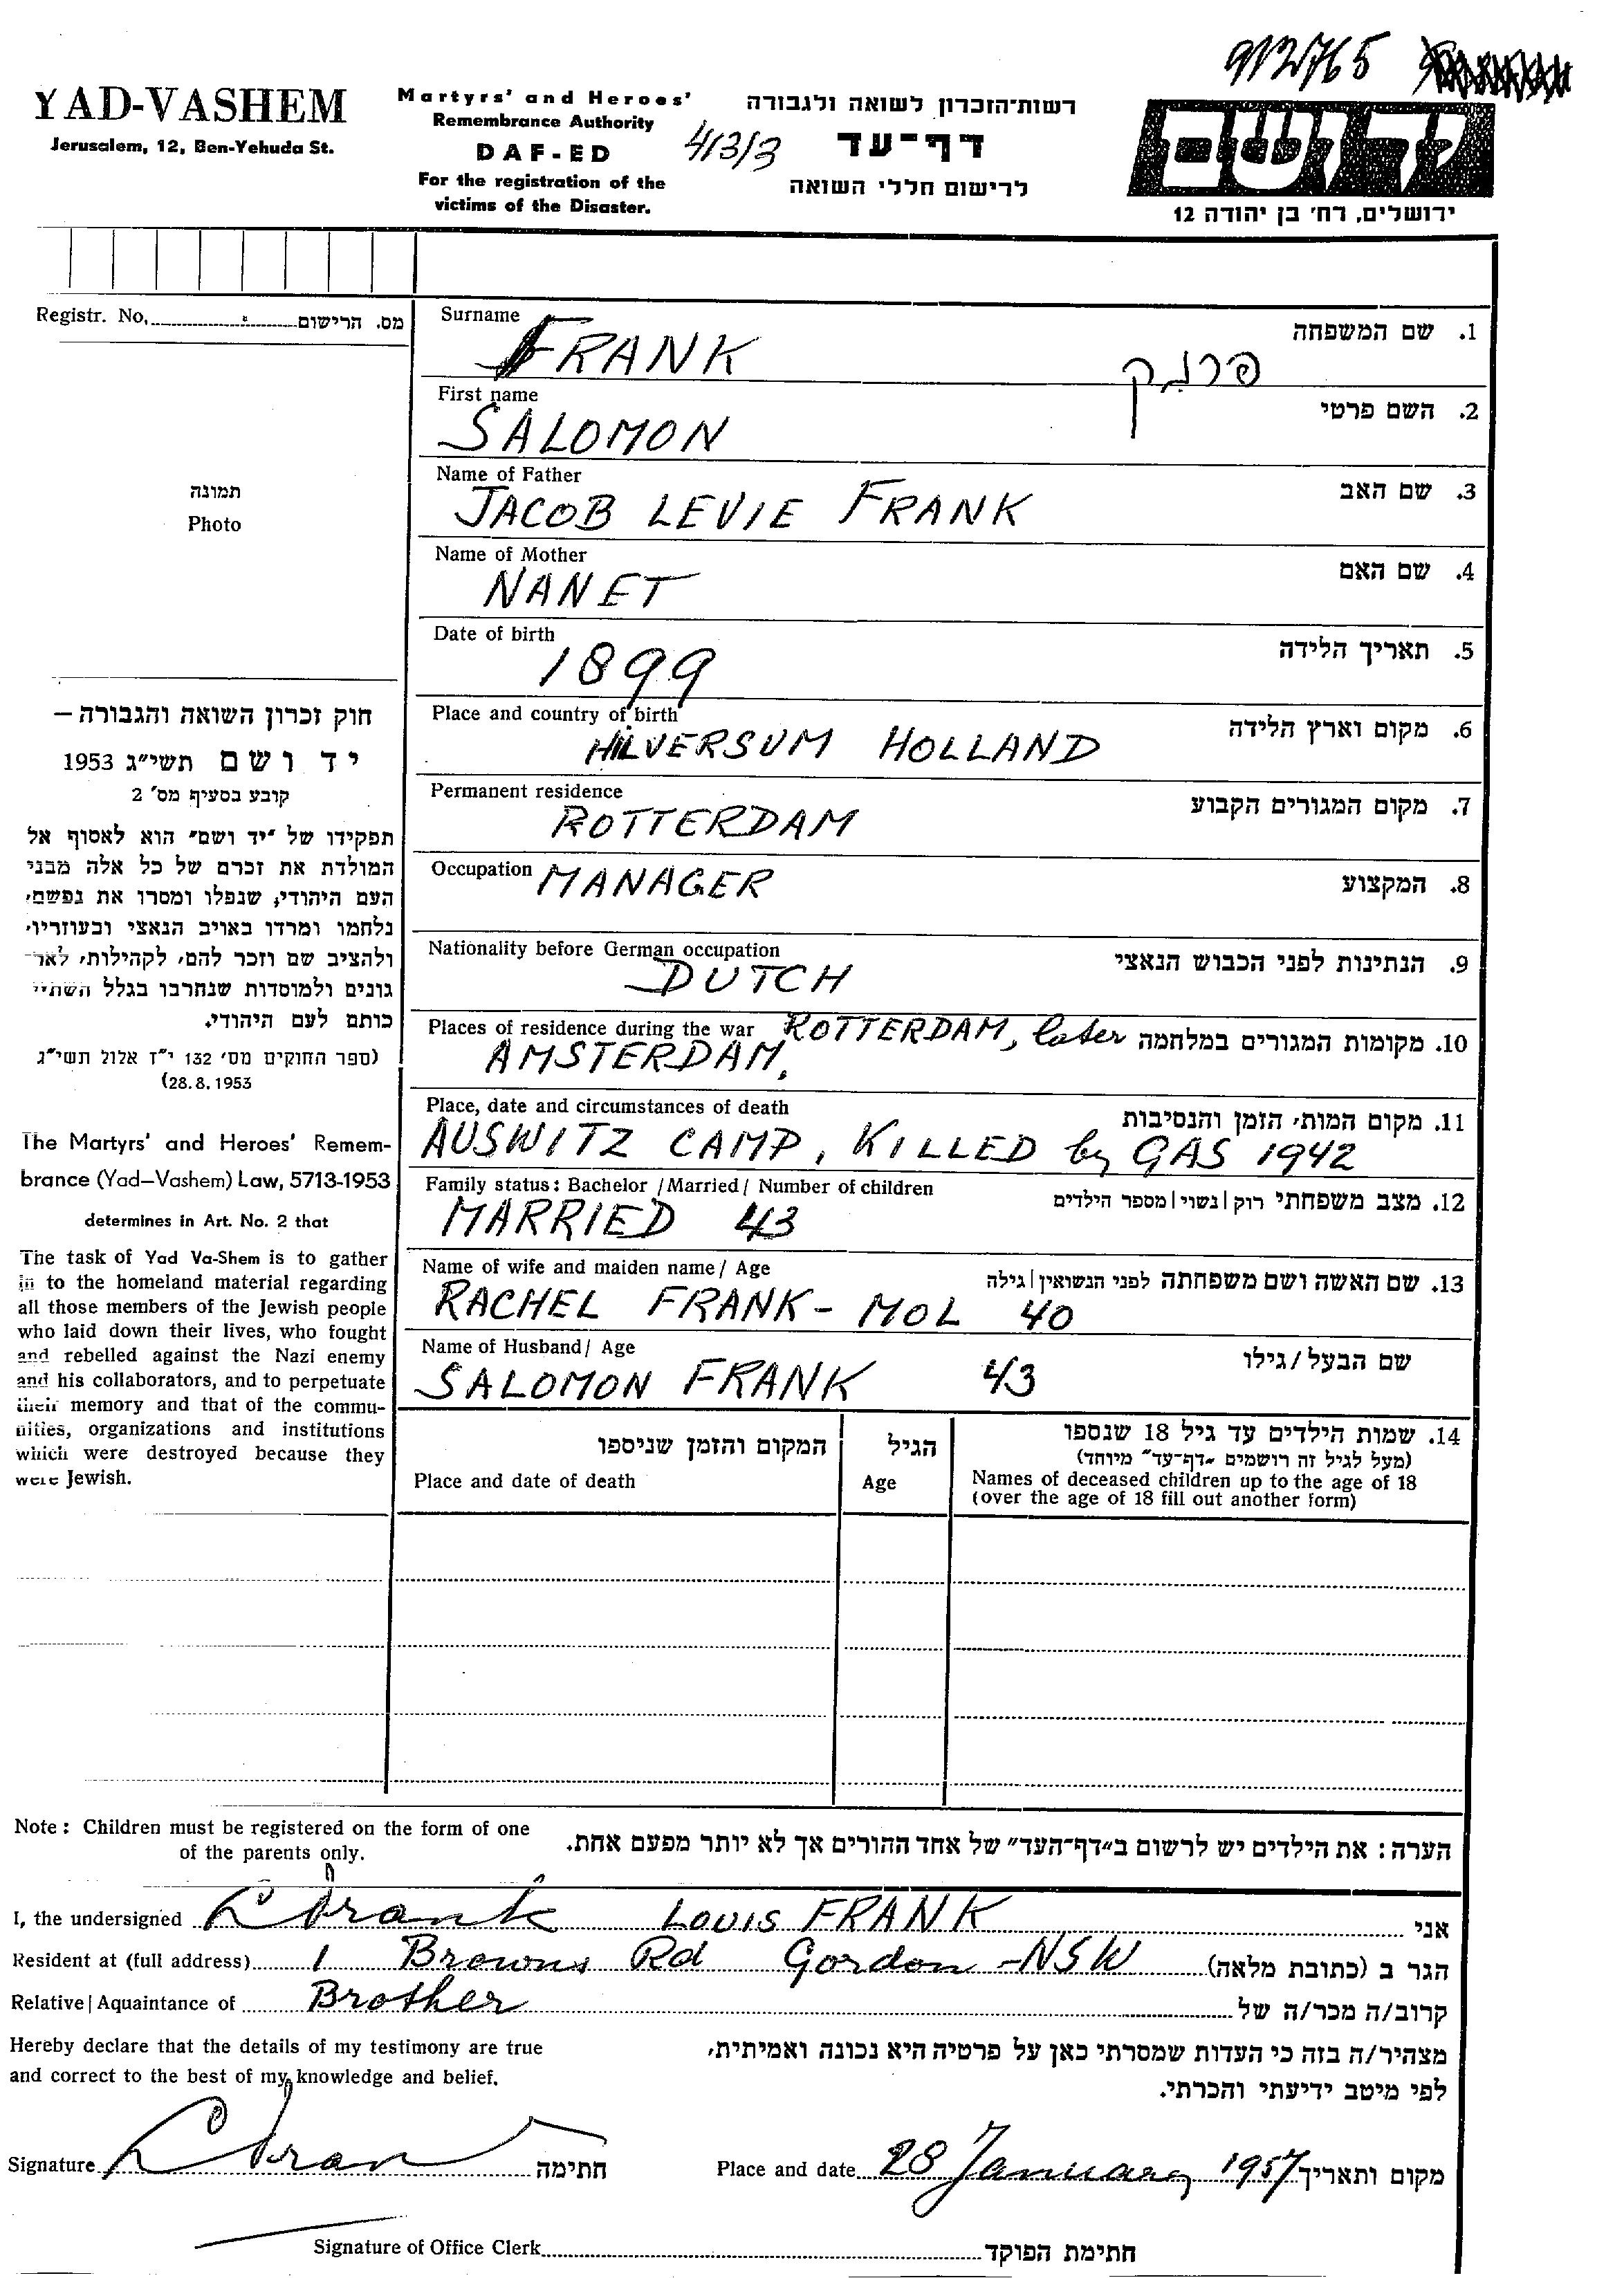 912765
YAD-VASHEM
Jerusalem, 12, Ben-Yehuda St.
Martyrs' and Heroes'
Remembrance Authority
DAF-ED
For the registration of the
victims of the Disaster.
413/3
רשות־הזכרון לשואה ולגבורה
דף־עד
לרישום חללי השואה
יד ושם
ירושלים, רח׳ בן יהודה 12
Registr. No. מס. הרישום
תמונה
Photo
חוק זכרון השואה והגבורה –
יד ושם תשי״ג 1953
קובע בסעיף מס׳ 2
תפקידו של ״יד ושם״ הוא לאסוף אל
המולדת את זכרם של כל אלה מבני
העם היהודי, שנפלו ומסרו את נפשם,
נלחמו ומרדו באויב הנאצי ובעוזריו,
ולהציב שם וזכר להם, לקהילות, לאר־
גונים ולמוסדות שנחרבו בגלל השתיי
כותם לעם היהודי.
(ספר החוקים מס׳ 132 י״ז אלול תשי״ג
(28.8.1953
The Martyrs' and Heroes' Remem-
brance (Yad-Vashem) Law, 5713-1953
determines in Art. No. 2 that
The task of Yad Va-Shem is to gather
in to the homeland material regarding
all those members of the Jewish people
who laid down their lives, who fought
and rebelled against the Nazi enemy
and his collaborators, and to perpetuate
their memory and that of the commu-
nities, organizations and institutions
which were destroyed because they
were Jewish.
Surname 1. שם המשפחה
FRANK פרנק
First name 2. השם פרטי
SALOMON
Name of Father 3. שם האב
JACOB LEVIE FRANK
Name of Mother 4. שם האם
NANET
Date of birth 5. תאריך הלידה
1899
Place and country of birth 6. מקום וארץ הלידה
HILVERSUM HOLLAND
Permanent residence 7. מקום המגורים הקבוע
ROTTERDAM
Occupation MANAGER 8. המקצוע
Nationality before German occupation 9. הנתינות לפני הכבוש הנאצי
DUTCH
Places of residence during the war ROTTERDAM, later 10. מקומות המגורים במלחמה
AMSTERDAM.
Place, date and circumstances of death 11. מקום המות, הזמן והנסיבות
AUSWITZ CAMP, KILLED by GAS 1942
Family status: Bachelor / Married / Number of children 12. מצב משפחתי רוק | נשוי | מספר הילדים
MARRIED 43
Name of wife and maiden name / Age 13. שם האשה ושם משפחתה לפני הנשואין | גילה
RACHEL FRANK - MOL 40
Name of Husband / Age שם הבעל / גילו
SALOMON FRANK 43
המקום והזמן שניספו
Place and date of death
הגיל
Age
14. שמות הילדים עד גיל 18 שנספו
(מעל לגיל זה רושמים ״דף־עד״ מיוחד)
Names of deceased children up to the age of 18
(over the age of 18 fill out another form)
Note: Children must be registered on the form of one
of the parents only.
הערה: את הילדים יש לרשום ב״דף־העד״ של אחד ההורים אך לא יותר מפעם אחת.
I, the undersigned L Frank LOUIS FRANK אני
Resident at (full address) 1 Browns Rd Gordon - NSW הגר ב (כתובת מלאה)
Relative | Aquaintance of Brother קרוב/ה מכר/ה של
Hereby declare that the details of my testimony are true
and correct to the best of my knowledge and belief.
מצהיר/ה בזה כי העדות שמסרתי כאן על פרטיה היא נכונה ואמיתית,
לפי מיטב ידיעתי והכרתי.
Signature L Frank חתימה
Place and date 28 January 1957 מקום ותאריך
Signature of Office Clerk חתימת הפוקד